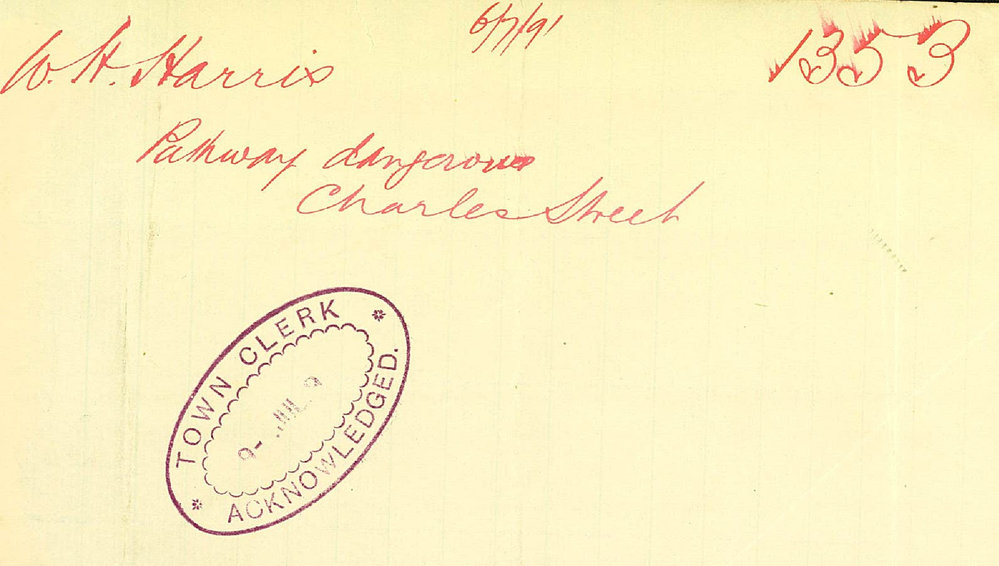 6/7/91
W. H. Harris 1353
Pathway dangerous
Charles Street
TOWN CLERK
9- JUL 9
ACKNOWLEDGED.